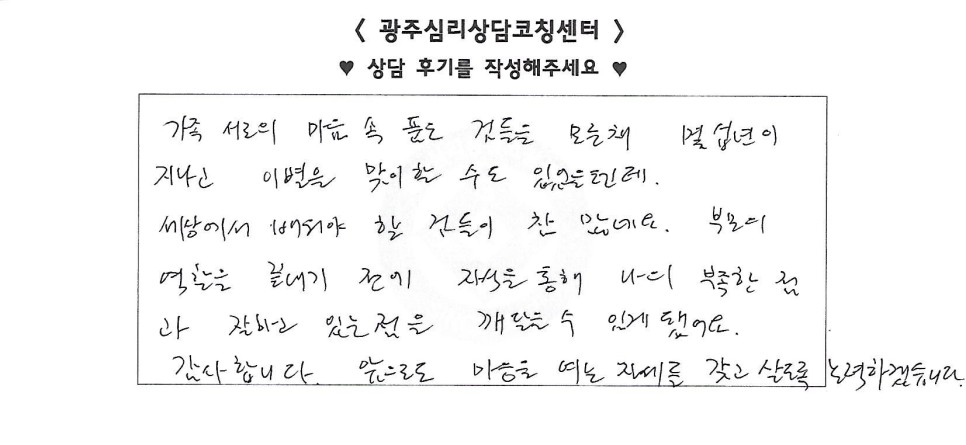 < 광주심리상담코칭센터 >
♥ 상담 후기를 작성해주세요 ♥
가족 서로의 마음 속 품은 것들을 모른채 몇 십년이
지나고 이별을 맞이할 수도 있었을텐데.
세상에서 배워야 할 것들이 참 많네요. 부모의
역할을 끝내기 전에 자식을 통해 나의 부족한 점
과 잘하고 있는점을 깨달을 수 있게 됐어요.
감사합니다. 앞으로도 마음을 여는 자세를 갖고 살도록 노력하겠습니다.